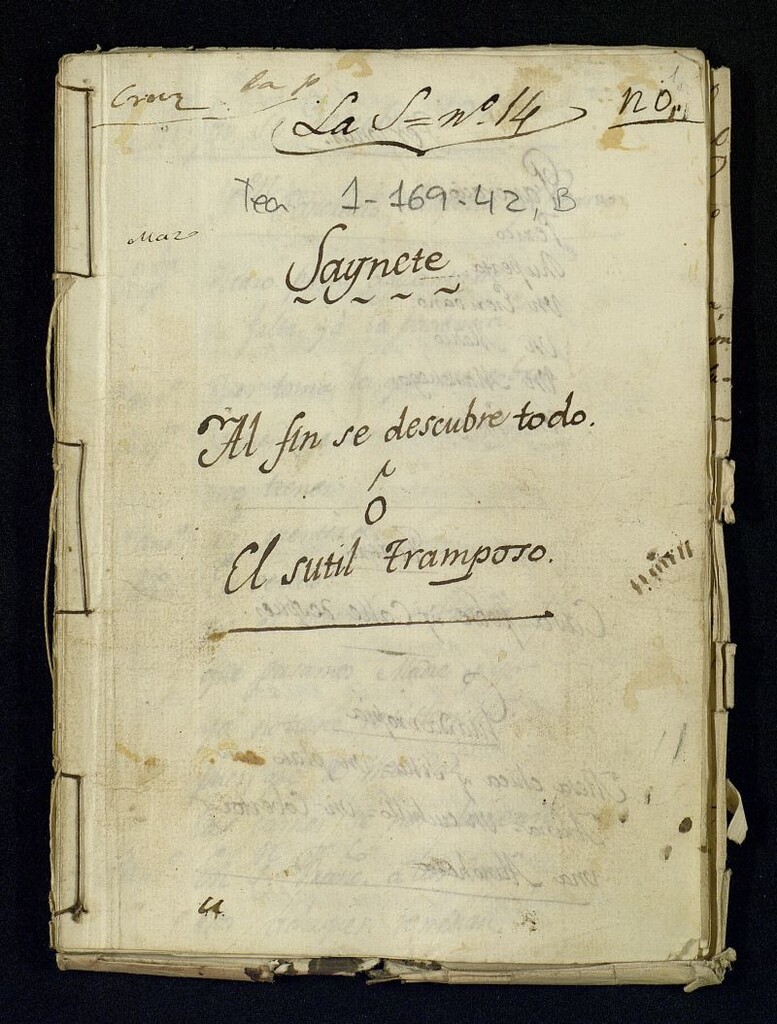 Cruz
La S= nº 14
no.
Tea 1-169-42, B
Saynete
Al fin se descubre todo.
Ó
El sutil Tramposo.